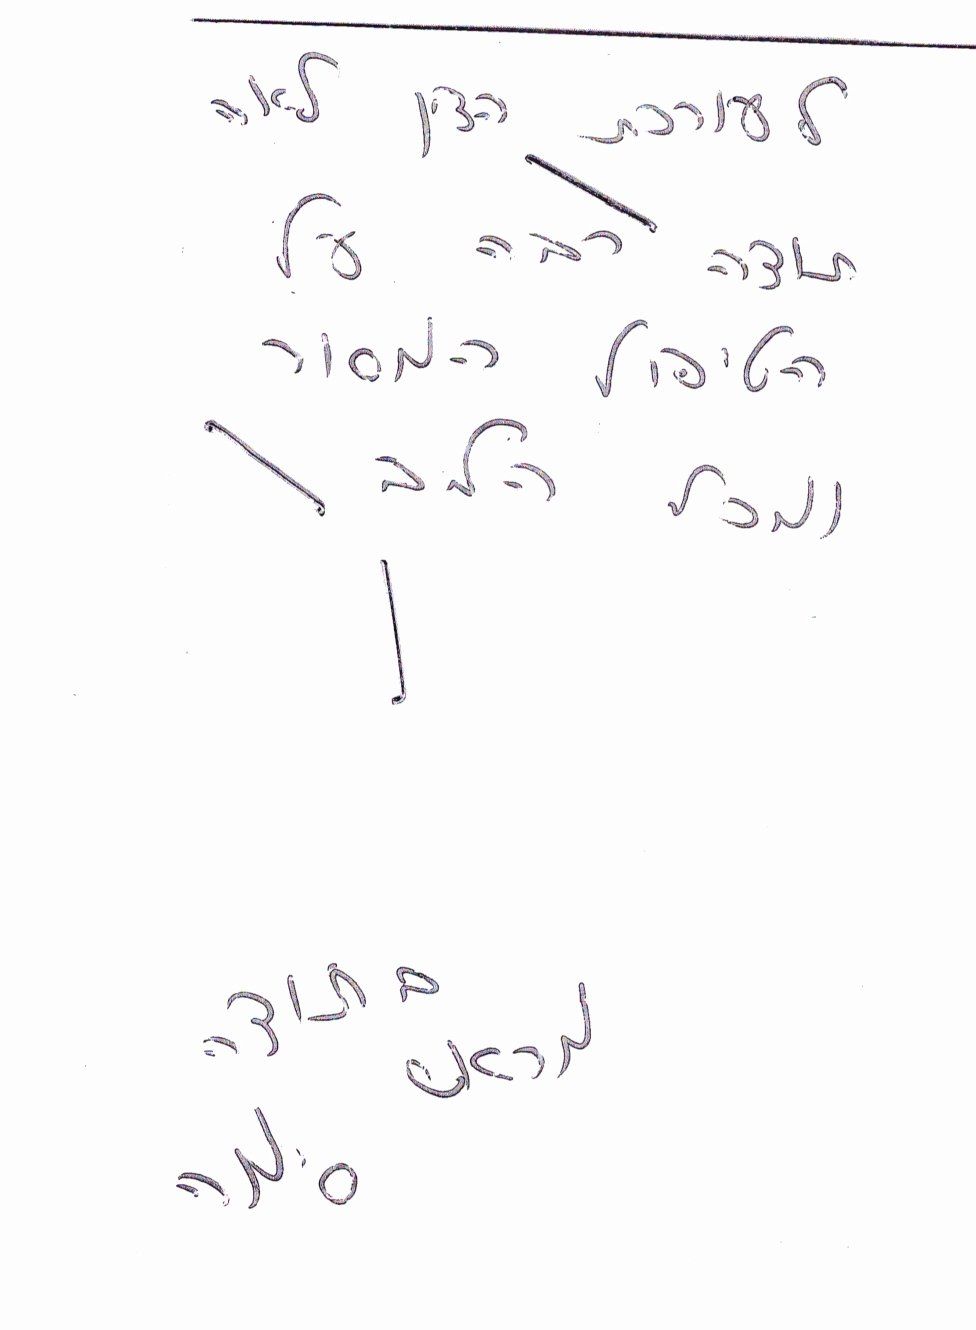 לעורכת הדין לאה
תודה רבה על
הטיפול המסור
ומכל הלב
בתודה
מראש
סימה